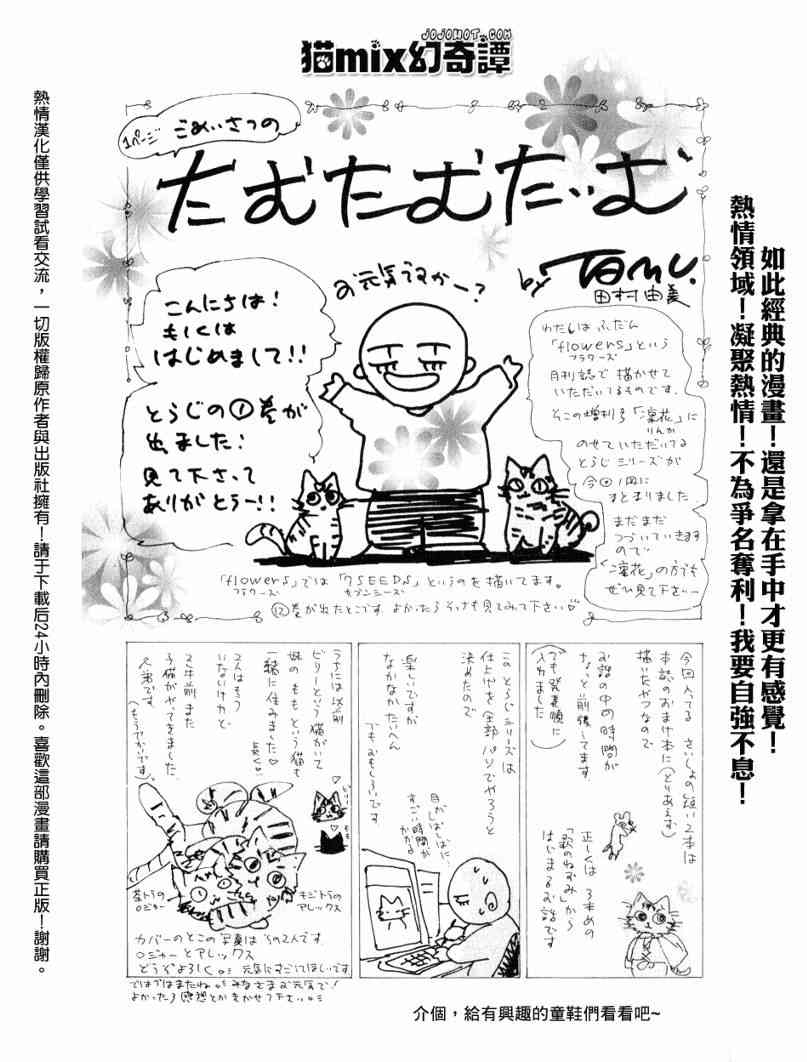 JOJOHOT.COM
猫mix幻奇譚
熱情漢化僅供學習試看交流，一切版權歸原作者與出版社擁有！請于下載后24小時內刪除。喜歡這部漫畫請購買正版！謝謝。
如此經典的漫畫！還是拿在手中才更有感覺！
熱情領域！凝聚熱情！不為爭名奪利！我要自強不息！
1ページ ごあいさつの
たむたむたいむ
by Tamu.
田村由美
お元気ですかー？
こんにちは！
もしくは
はじめまして!!
とらじの①巻が
出ました！
見て下さって
ありがとうー!!
わたしは ふだん
「flowers」という
フラワーズ
月刊誌で 描かせて
いただいてるものです。
そこの増刊号「凛花」に
りんか
のせていただいてる
とらじシリーズが
今回1冊に
まとまりました
まだまだ
つづいていきます
ので
「凛花」の方も
ぜひ見て下さい
「flowers」では「7SEEDS」というのを描いてます。
フラワーズ
セブンシーズ
⑫巻が出たとこです よかったらそっちも見てみて下さい♡
今回入ってる さいしょの短い2本は
本誌のおまけ本に(とりあえず)
描いたやつなので
お話の中の時間が
ちょっと前後してます。
(でも発表順に
入れました)
正しくは 3本めの
「歌のねずみ」から
はじまるお話です
このとらじシリーズは
仕上げを全部パソでやろうと
決めたので
楽しいですが
なかなかたいへん
でもおもしろいです
目がしばしばに、
すごい時間が
かかる
うちには以前
ビリーという猫がいて
妹のももという猫も
一緒に住みました♡
長く♡
2人はもう
いないけれど
2年前また
子猫がやってきました
兄弟です。
(もうでかいです)
茶トラの
ロジャー
キジトラの
アレックス
カバーのとこの写真はうちの2人です。
ロジャーとアレックス
どうぞよろしく。 元気にすごしてほしいです
ではではまたね みなさまお元気で！
よかったら感想とかきかせて下さい
介個，給有興趣的童鞋們看看吧~